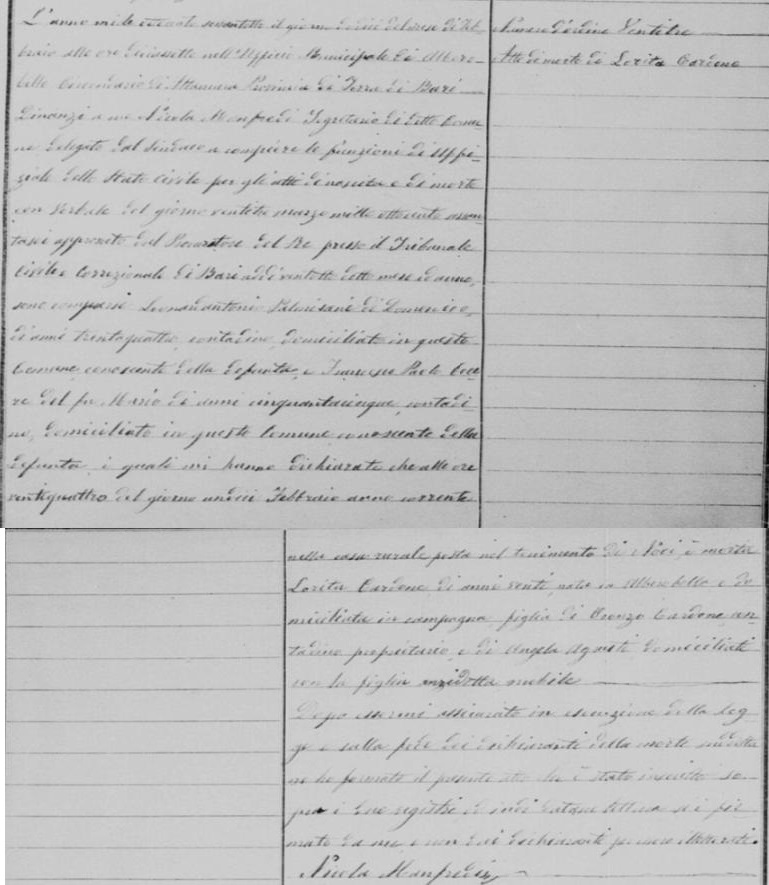 L'anno mille ottocento sessantotto il giorno dodici del mese di Feb-
braio alle ore diciassette nell'Uffizio Municipale di Albero-
bello Circondario di Altamura Provincia di Terra di Bari
Dinanzi a me Nicola Manfredi Segretario di detto Comu-
ne delegato dal Sindaco a compiere le funzioni di Uffi-
ziale dello Stato Civile per gli atti di nascita e di morte
con verbale del giorno marzo mille ottocento sessan-
tasei approvato dal Procuratore del Re presso il Tribunale
Civile e Correzionale di Bari addì ventotto detto mese ed anno,
sono comparsi Leonardantonio Palmisani di Domenico,
di anni trentaquattro, contadino, domiciliato in questo
Comune, conoscente della defunta, e Francesco Paolo
del fu Mario di anni cinquantacinque, contadi-
no, domiciliato in questo Comune conoscente della
defunta, i quali mi hanno dichiarato che alle ore
ventiquattro del giorno undici Febbraio anno corrente
Numero d'ordine Ventitre
Atto di morte di Lorita Cardone
nella casa rurale posta nel tenimento di Noci, è morta
Lorita Cardone di anni venti, nata in Alberobello e do-
miciliata in campagna figlia di Oronzo Cardone con-
tadino proprietario, e di Angela Agnesi domiciliati
con la figlia anzidetta nubile
Dopo essermi assicurato in esecuzione della leg-
ge e sulla fede dei dichiaranti della morte suddetta
ne ho formato il presente atto che è stato inscritto so-
pra i due registri ed indi datane lettura si è fir-
mato da me, e non dai dichiaranti per essere illetterati.
Nicola Manfredi